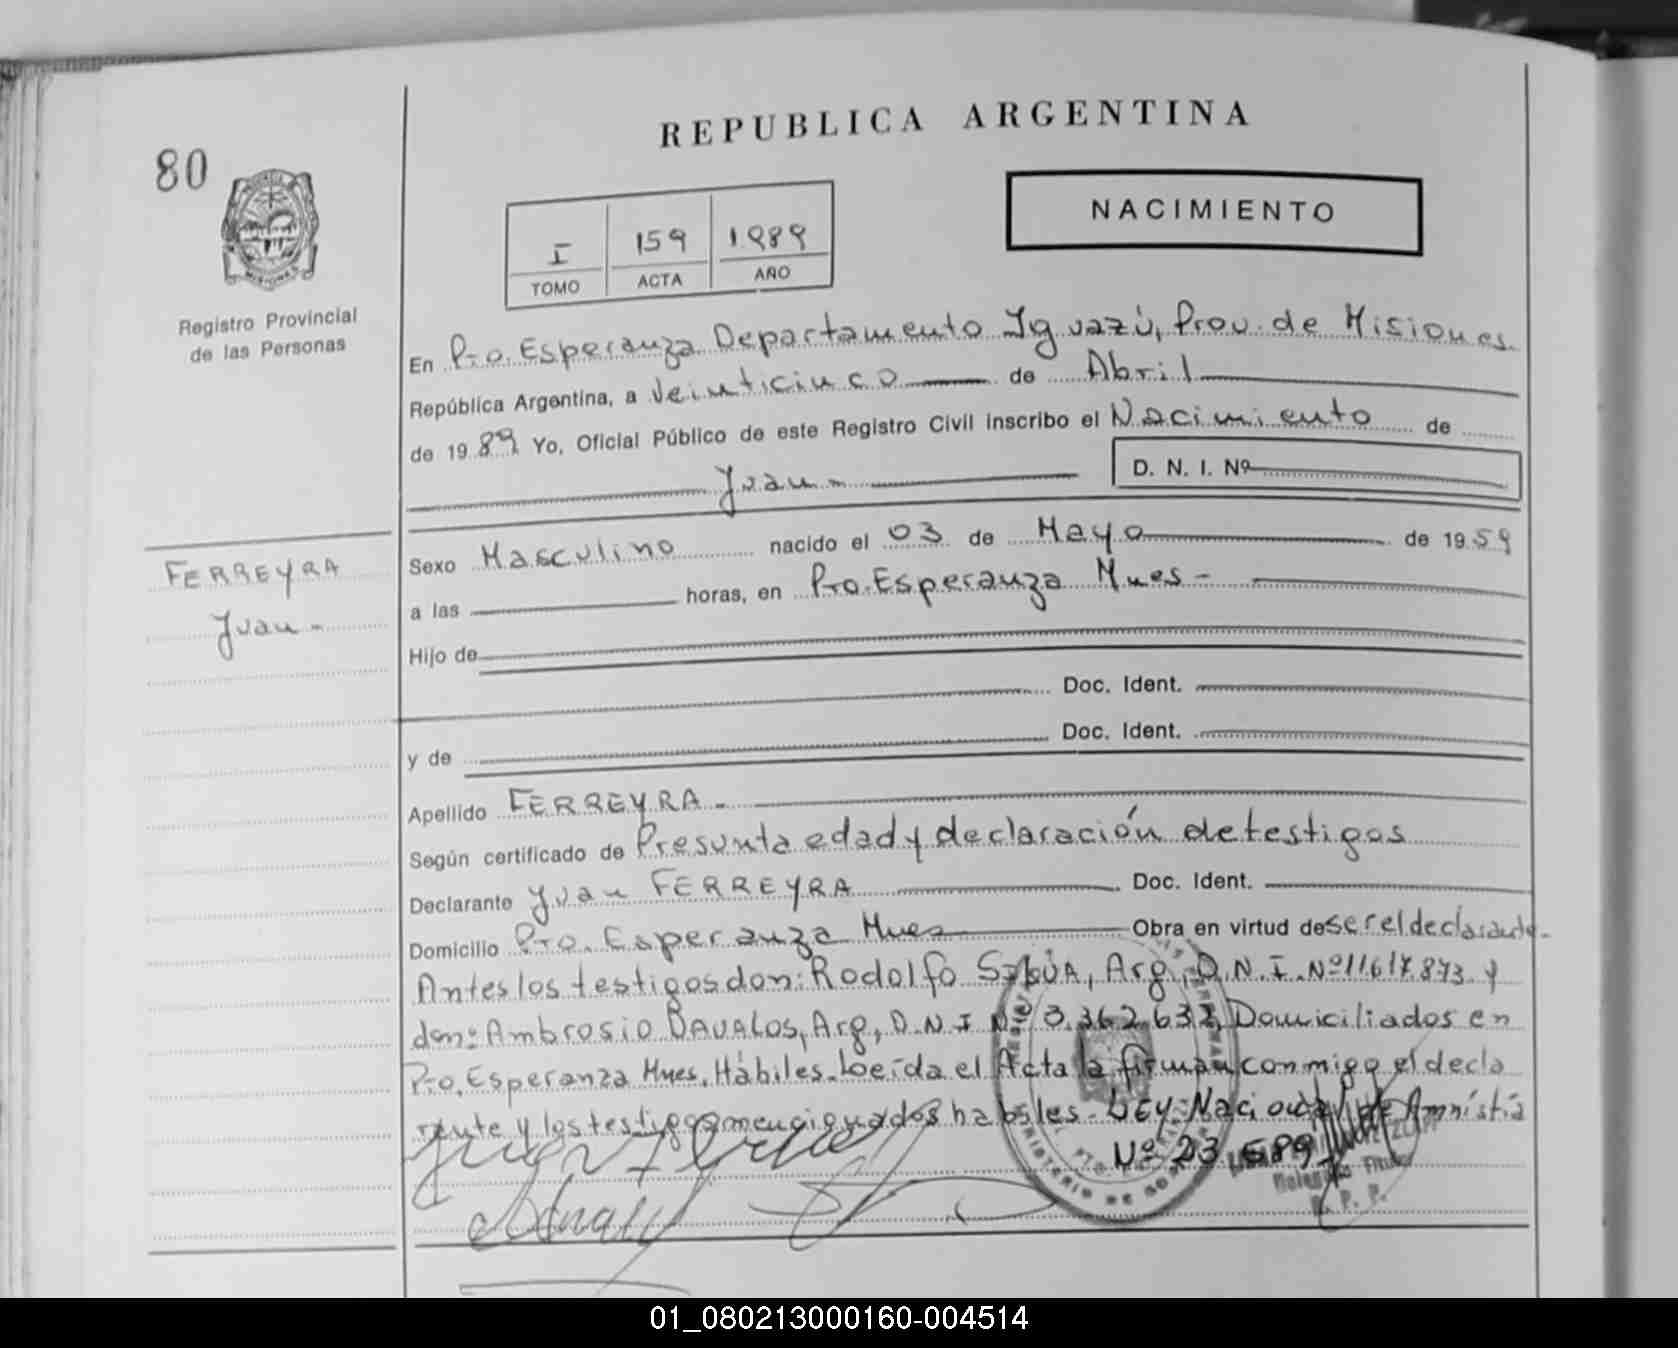 REPUBLICA ARGENTINA
80
NACIMIENTO
I 159 1989
TOMO ACTA AÑO
Registro Provincial
de las Personas
En Pto. Esperanza Departamento Iguazú, Prov. de Misiones.
República Argentina, a Veinticinco de Abril
de 1989 Yo, Oficial Público de este Registro Civil inscribo el Nacimiento de
Juan.-
D. N. I. Nº
FERREYRA
Juan.-
Sexo Masculino nacido el 03 de Mayo de 1959
a las horas, en Pto. Esperanza Mnes-
Hijo de
Doc. Ident.
y de Doc. Ident.
Apellido FERREYRA.-
Según certificado de Presunta edad y declaración de testigos
Declarante Juan FERREYRA Doc. Ident.
Domicilio Pto. Esperanza Mnes Obra en virtud de ser el declarante.-
Antes los testigos don: Rodolfo Arg, D.N.I. Nº y
don: Ambrosio DAVALOS, Arg, D.N.I Nº 3.362.632, Domiciliados en
Pto. Esperanza Mnes. Hábiles. Loeída el Acta la firman conmigo el decla
rante y los testigos mencionados habiles.- LEY Nacional de Amnistia
Nº 23.689
MINISTERIO DE
R. P. P.
01_080213000160-004514